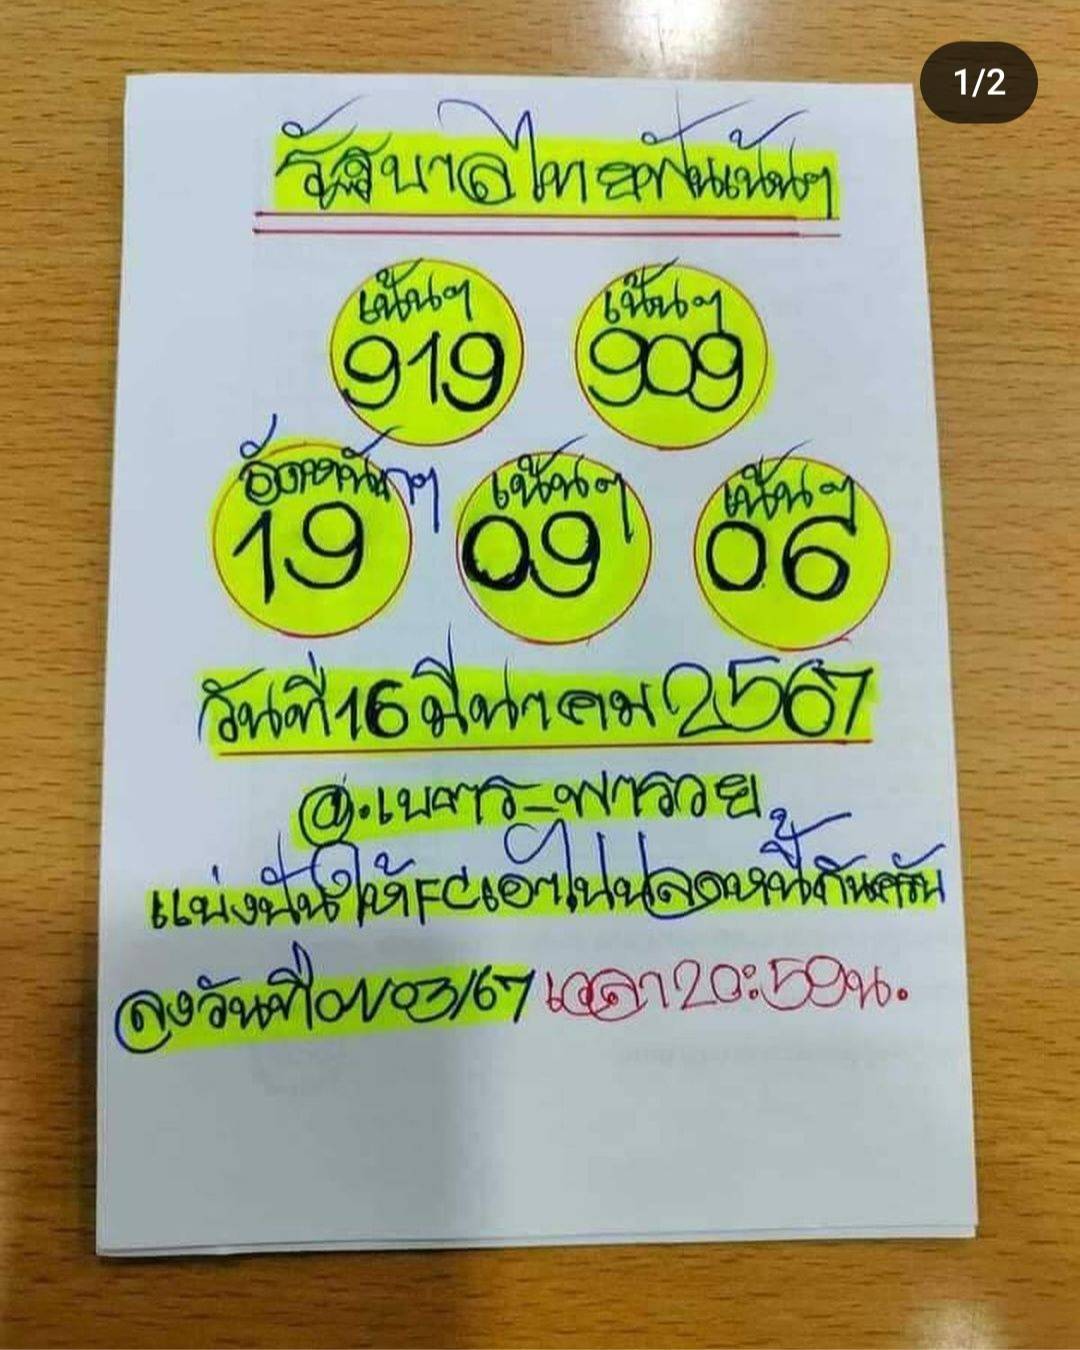 1/2
รัฐบาลไทยฟันเน้นๆ
เน้นๆ เน้นๆ
919 909
อัดหนักๆ เน้นๆ เน้นๆ
19 09 06
วันที่ 16 มีนาคม 2567
@.เบตาร-พารวย
แบ่งปันให้FCเอาไปปลดหนี้กันครับ
ลงวันที่ 01/03/67 เวลา 20:59น.